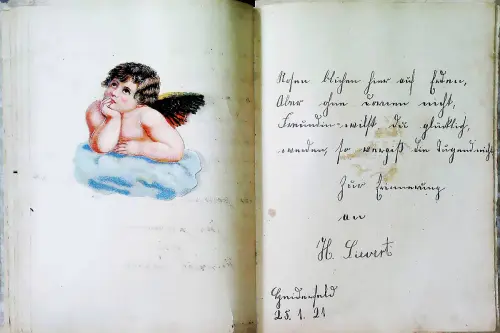 Rosen blühen hier auf Erden,
Aber ohne Dornen nicht,
Freundin willst du glücklich
werden, so vergiß die Tugend nicht
Zur Erinnerung
an
H. Sievert
25. 1. 21